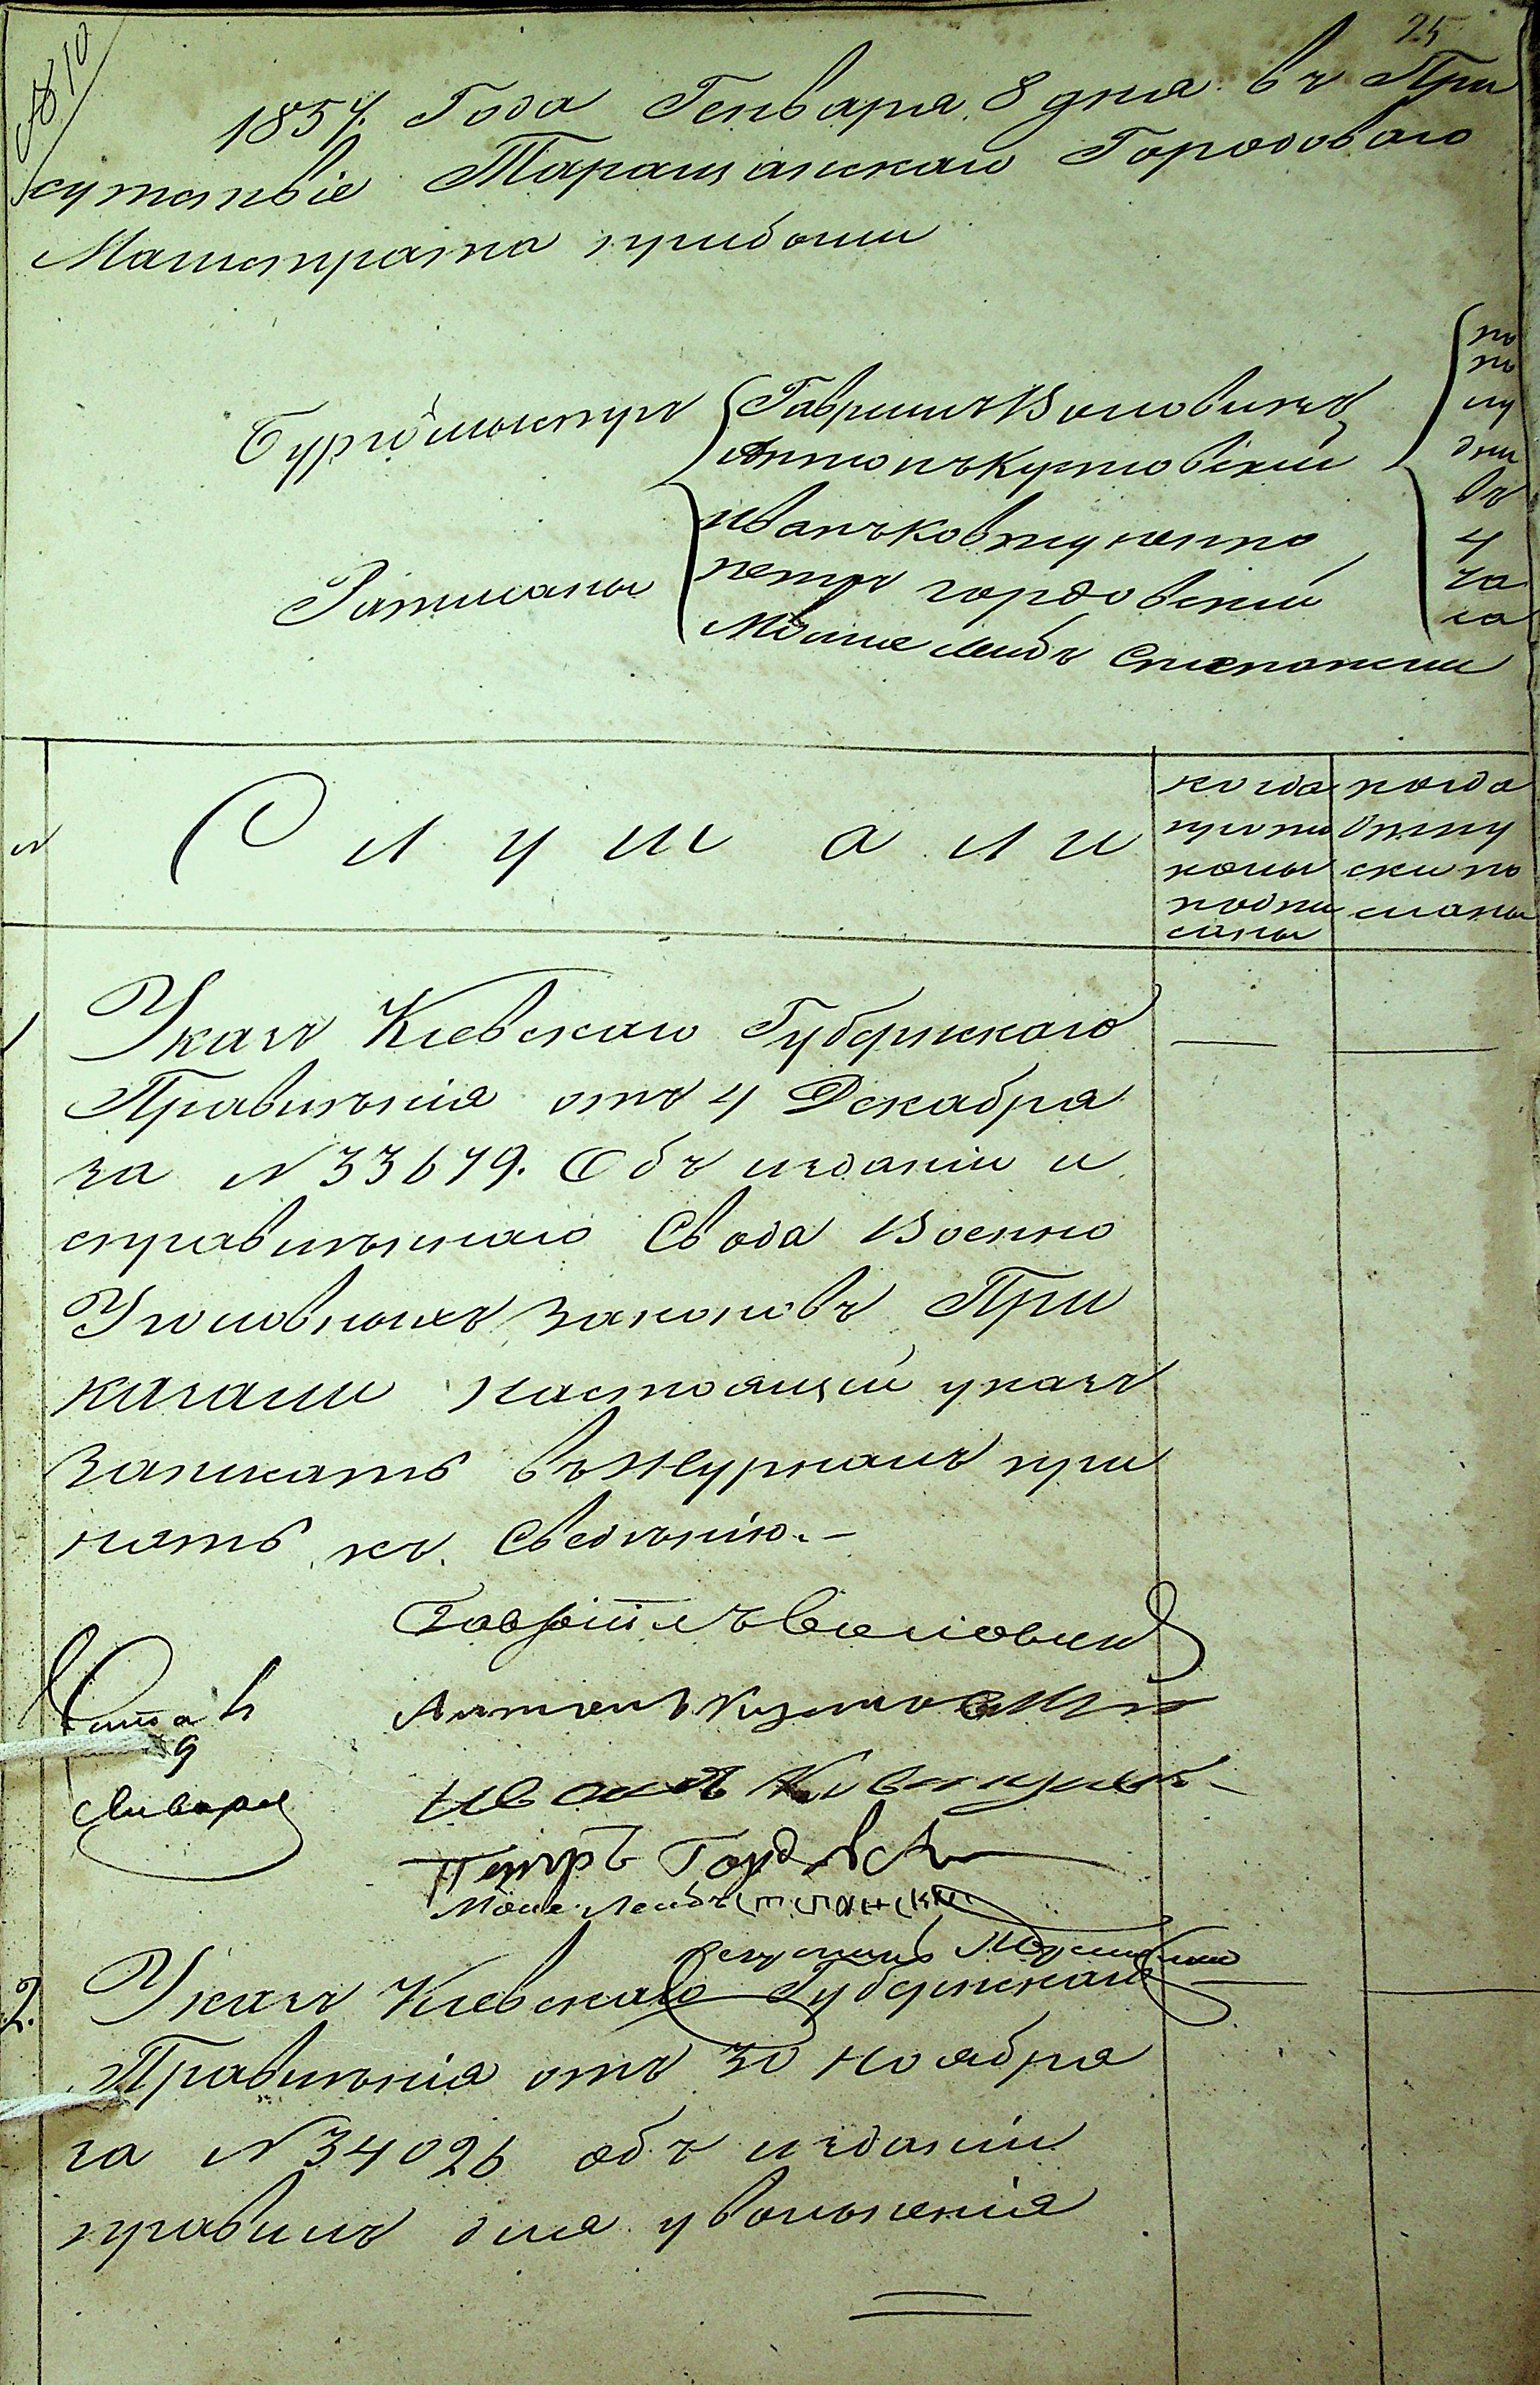 № 10
25
1857. Года Генваря 8 дня въ При
сутствіе Таращанскаго Городоваго
Магистрата прибыли
Бургомистръ
Гавриилъ Воловикъ
Антонъ Кутовскій
Ратманы
Иванъ Ковтуненко
Петръ Гордовскій
Мошке Лейбъ Степанскій
по
по
лу
дни
въ
4
ча
са
№
Слушали
когда
прото
колы
подпи
саны
когда
отпу
ски по
сланы
1
Указъ Кіевскаго Губернскаго
Правленія отъ 4 Декабря
за N 33679. Объ изданіи и
справленнаго Свода Военно
Уголовныхъ законовъ При
казали настоящій указъ
записать въ Журналъ при
нять къ Сведенію.-
Гавріилъ Воловик
Антонъ Кутовскій
9
Января
Иванъ Ковтуненко
Петръ Гордовск
Моше Лейбъ Степанскій
2.
Указъ Кіевскаго Губернскаго
Правленія отъ 30 Ноября
за N 34026 объ изданіи
правилъ для увольненія